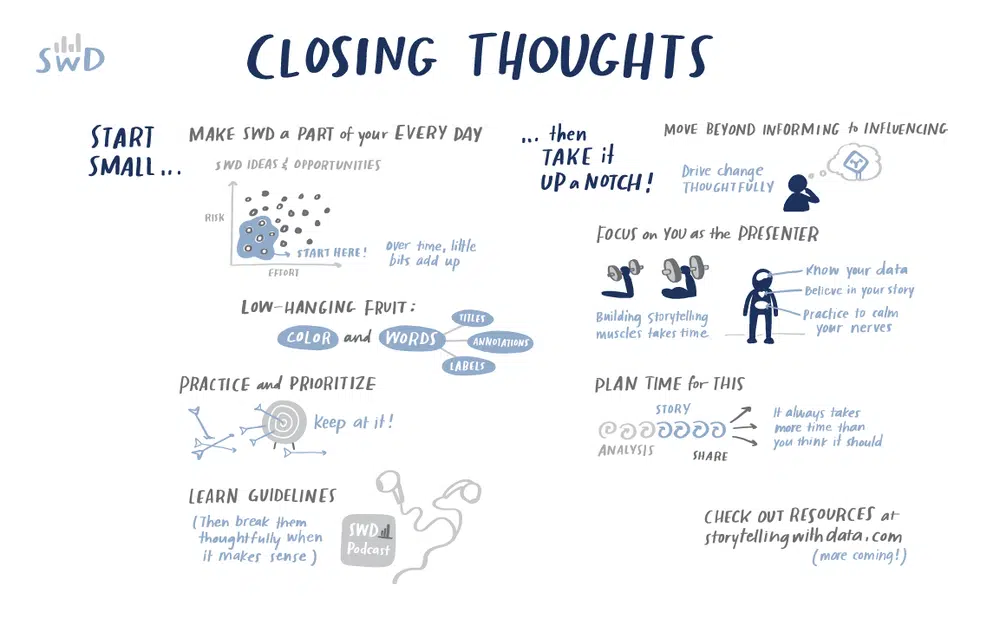 SWD
CLOSING THOUGHTS
START
SMALL...
MAKE SWD a PART of your EVERY DAY
SWD IDEAS & OPPORTUNITIES
RISK
START HERE!
EFFORT
Over time, little
bits add up
LOW-HANGING FRUIT:
COLOR and WORDS
TITLES
ANNOTATIONS
LABELS
PRACTICE and PRIORITIZE
Keep at it!
LEARN GUIDELINES
(Then break them
thoughtfully when
it makes sense)
SWD
Podcast
... then
TAKE it
UP a NOTCH!
MOVE BEYOND INFORMING to INFLUENCING
Drive change
THOUGHTFULLY
FOCUS on YOU as the PRESENTER
Building Storytelling
muscles takes time.
Know your data
Believe in your story
Practice to calm
your nerves
PLAN TIME for THIS
STORY
ANALYSIS
SHARE
It always takes
more time than
you think it should
CHECK OUT RESOURCES at
storytellingwithdata.com
(more coming!)